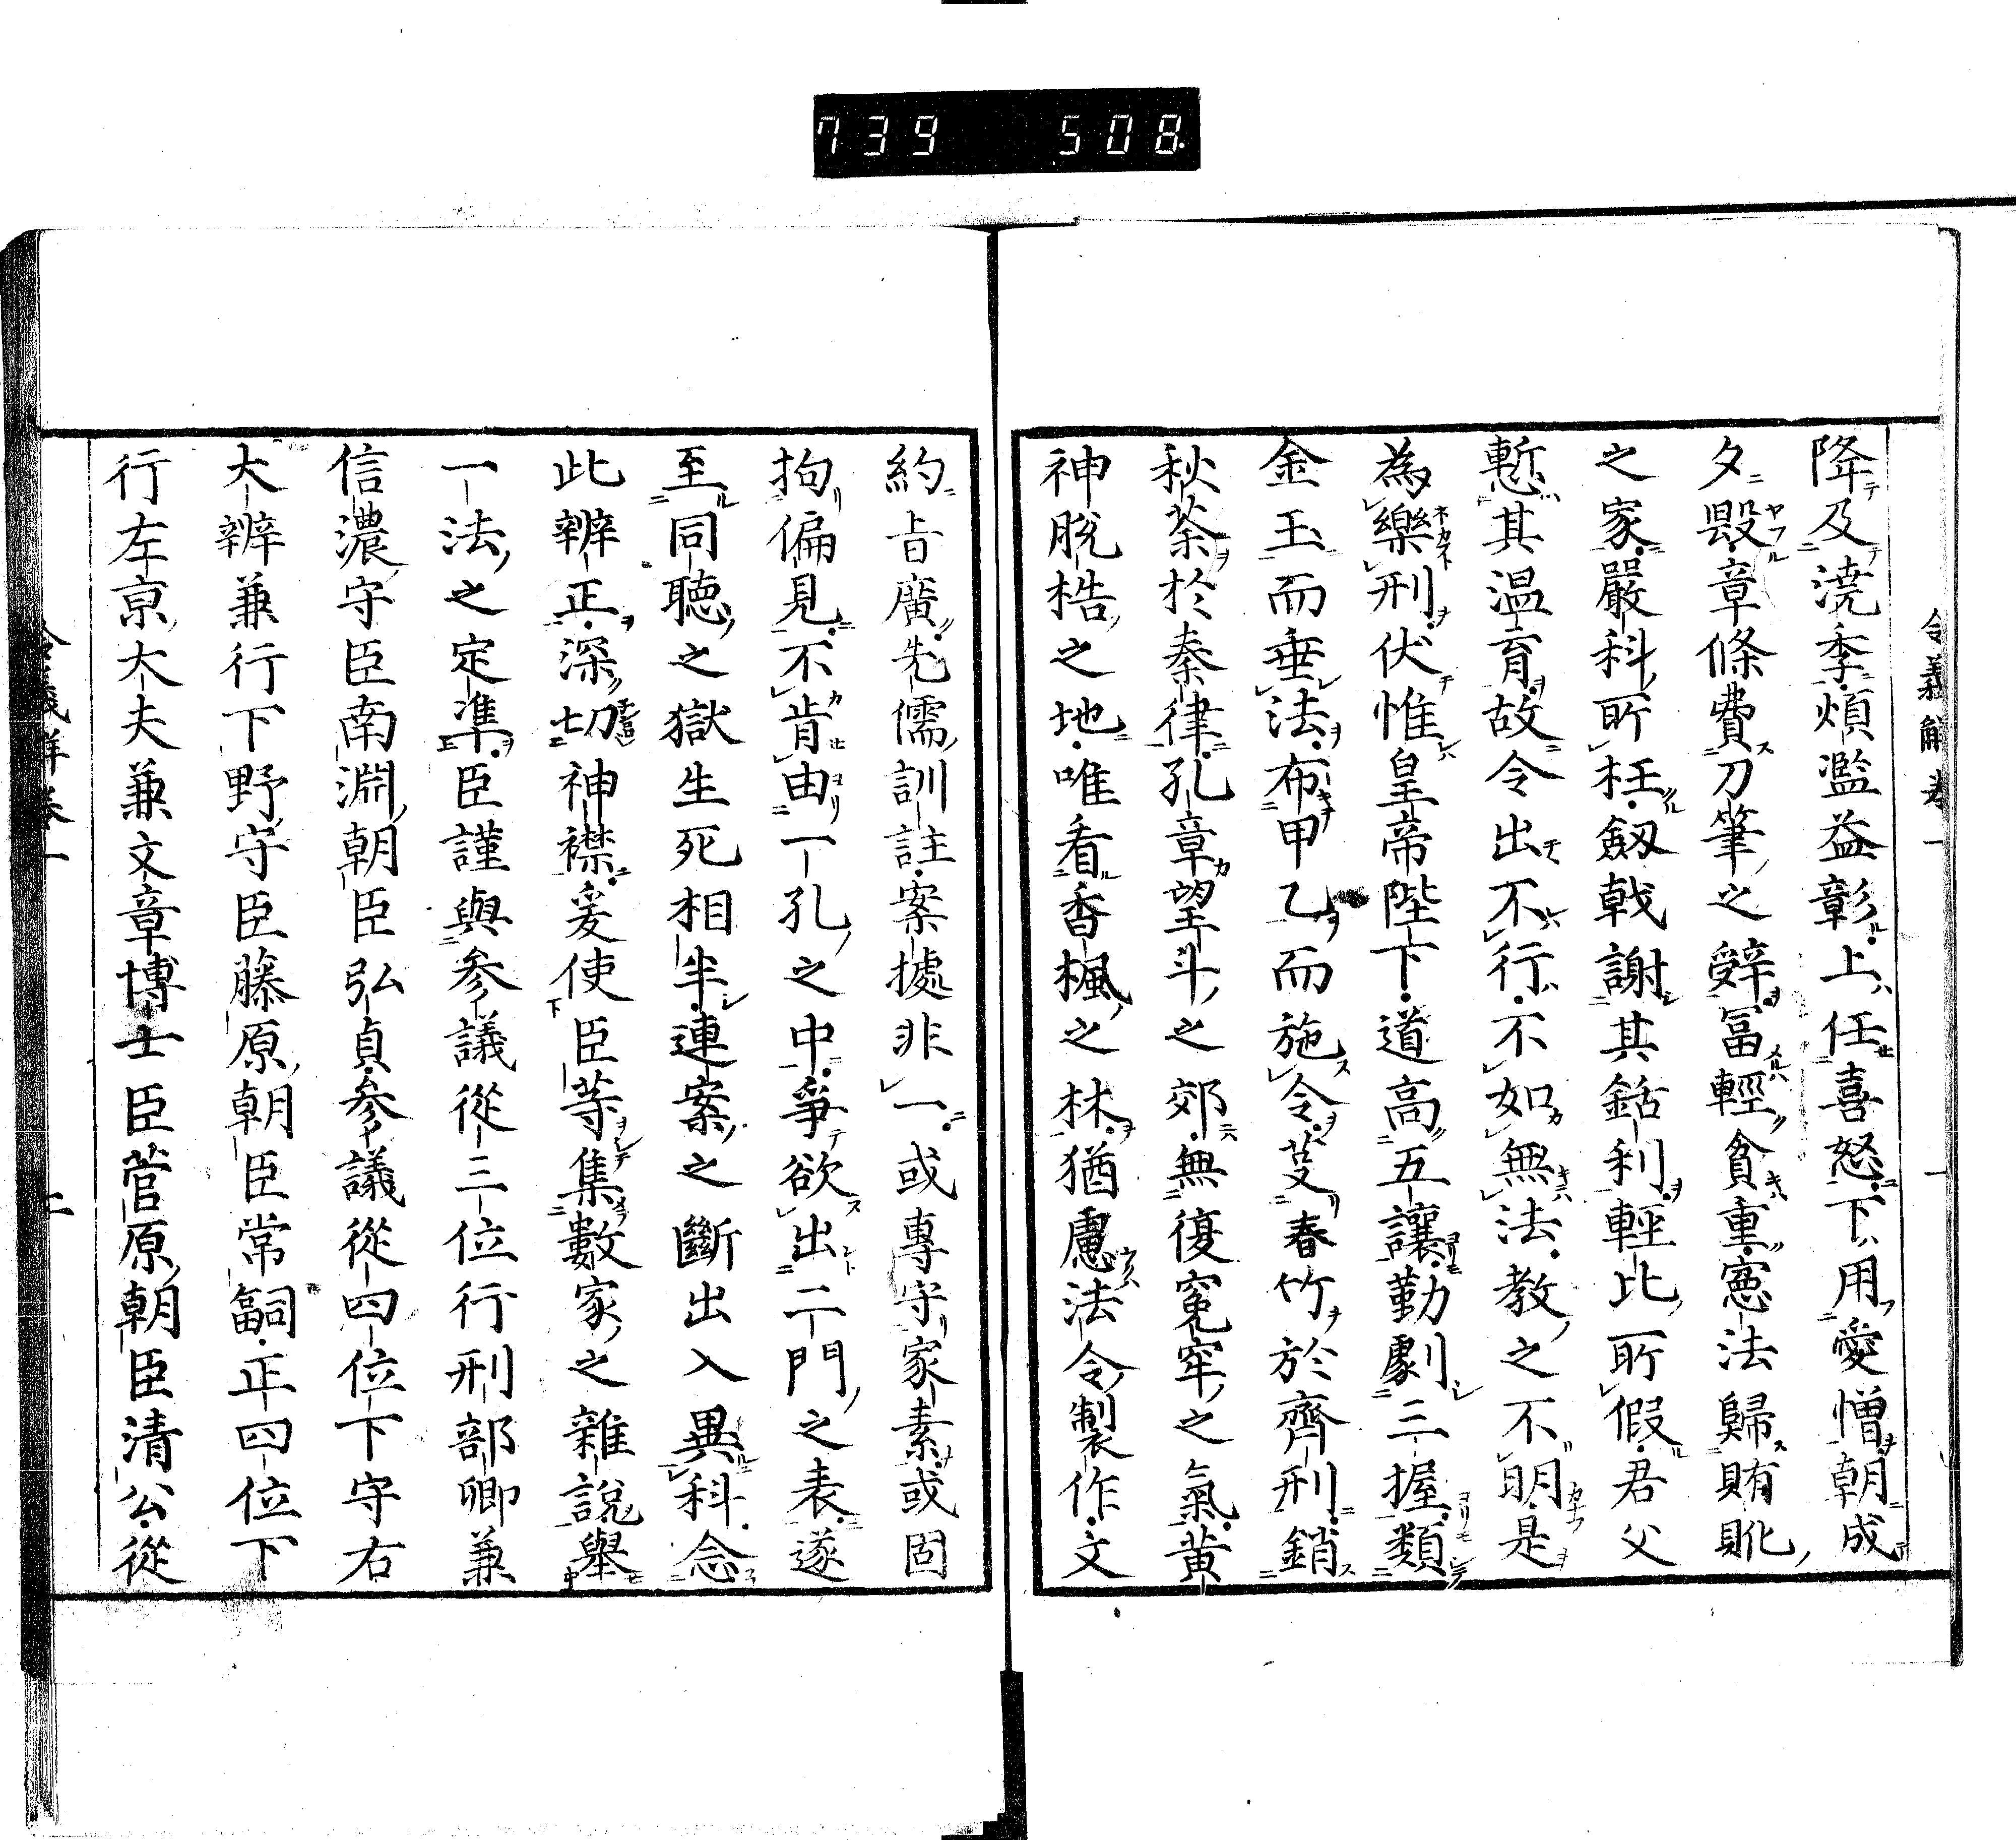 739 508
令義解卷一
降及澆季煩濫益彰上任喜怒下用愛憎朝成
夕毀章條費刀筆之辭冨輕貧重憲法歸賄貨
之家嚴科所枉劔戟謝其銛利輕比所假君父
慙其溫育故令出不行不如無法教之不明是
為樂刑伏惟皇帝陛下道高五讓勤劇三握類
金玉而垂法布甲乙而施令芟春竹於齊刑銷
秋荼於秦律孔章望斗之郊無復寃牢之氣黄
神脫梏之地唯看香楓之林猶慮法令製作文
約旨廣先儒訓註案據非一或專守家素或固
拘偏見不肯由一孔之中爭欲出二門之表遂
至同聽之獄生死相半連案之斷出入異科念
此辨正深切神襟爰使臣等集數家之雜說舉
一法之定準臣謹與參議從三位行刑部卿兼
信濃守臣南淵朝臣弘貞參議從四位下守右
大辨兼行下野守臣藤原朝臣常嗣正四位下
行左京大夫兼文章博士臣菅原朝臣清公從
令義解卷一